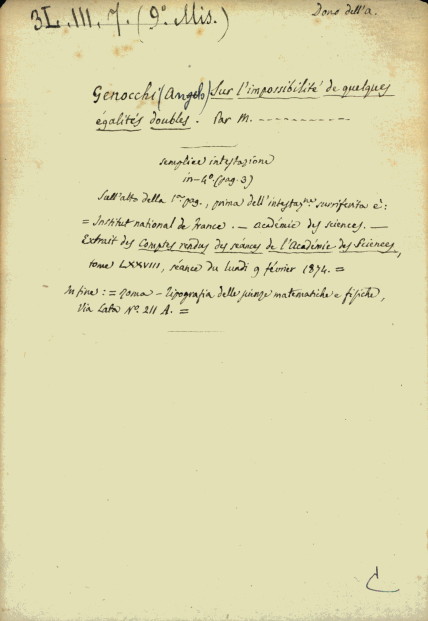 3L. III. 7. (9º. Mis.)
Dono dell'a.
Genocchi (Angelo) Sur l'impossibilité de quelques
égalités doubles. Par M. - - - - - - - - - -
semplice intestazione
in-4º. (pag. 3)
Sull'alto della 1ª. pag., prima dell'intestazne. surriferita è:
= Institut national de France. — Académie des sciences. —
Extrait des Comptes rendus des séances de l'Académie des Sciences,
tome LXXVIII, séance du lundi 9 février 1874. =
In fine: = Roma — Tipografia delle scienze matematiche e fisiche,
Via Lata Nº. 211 A. =